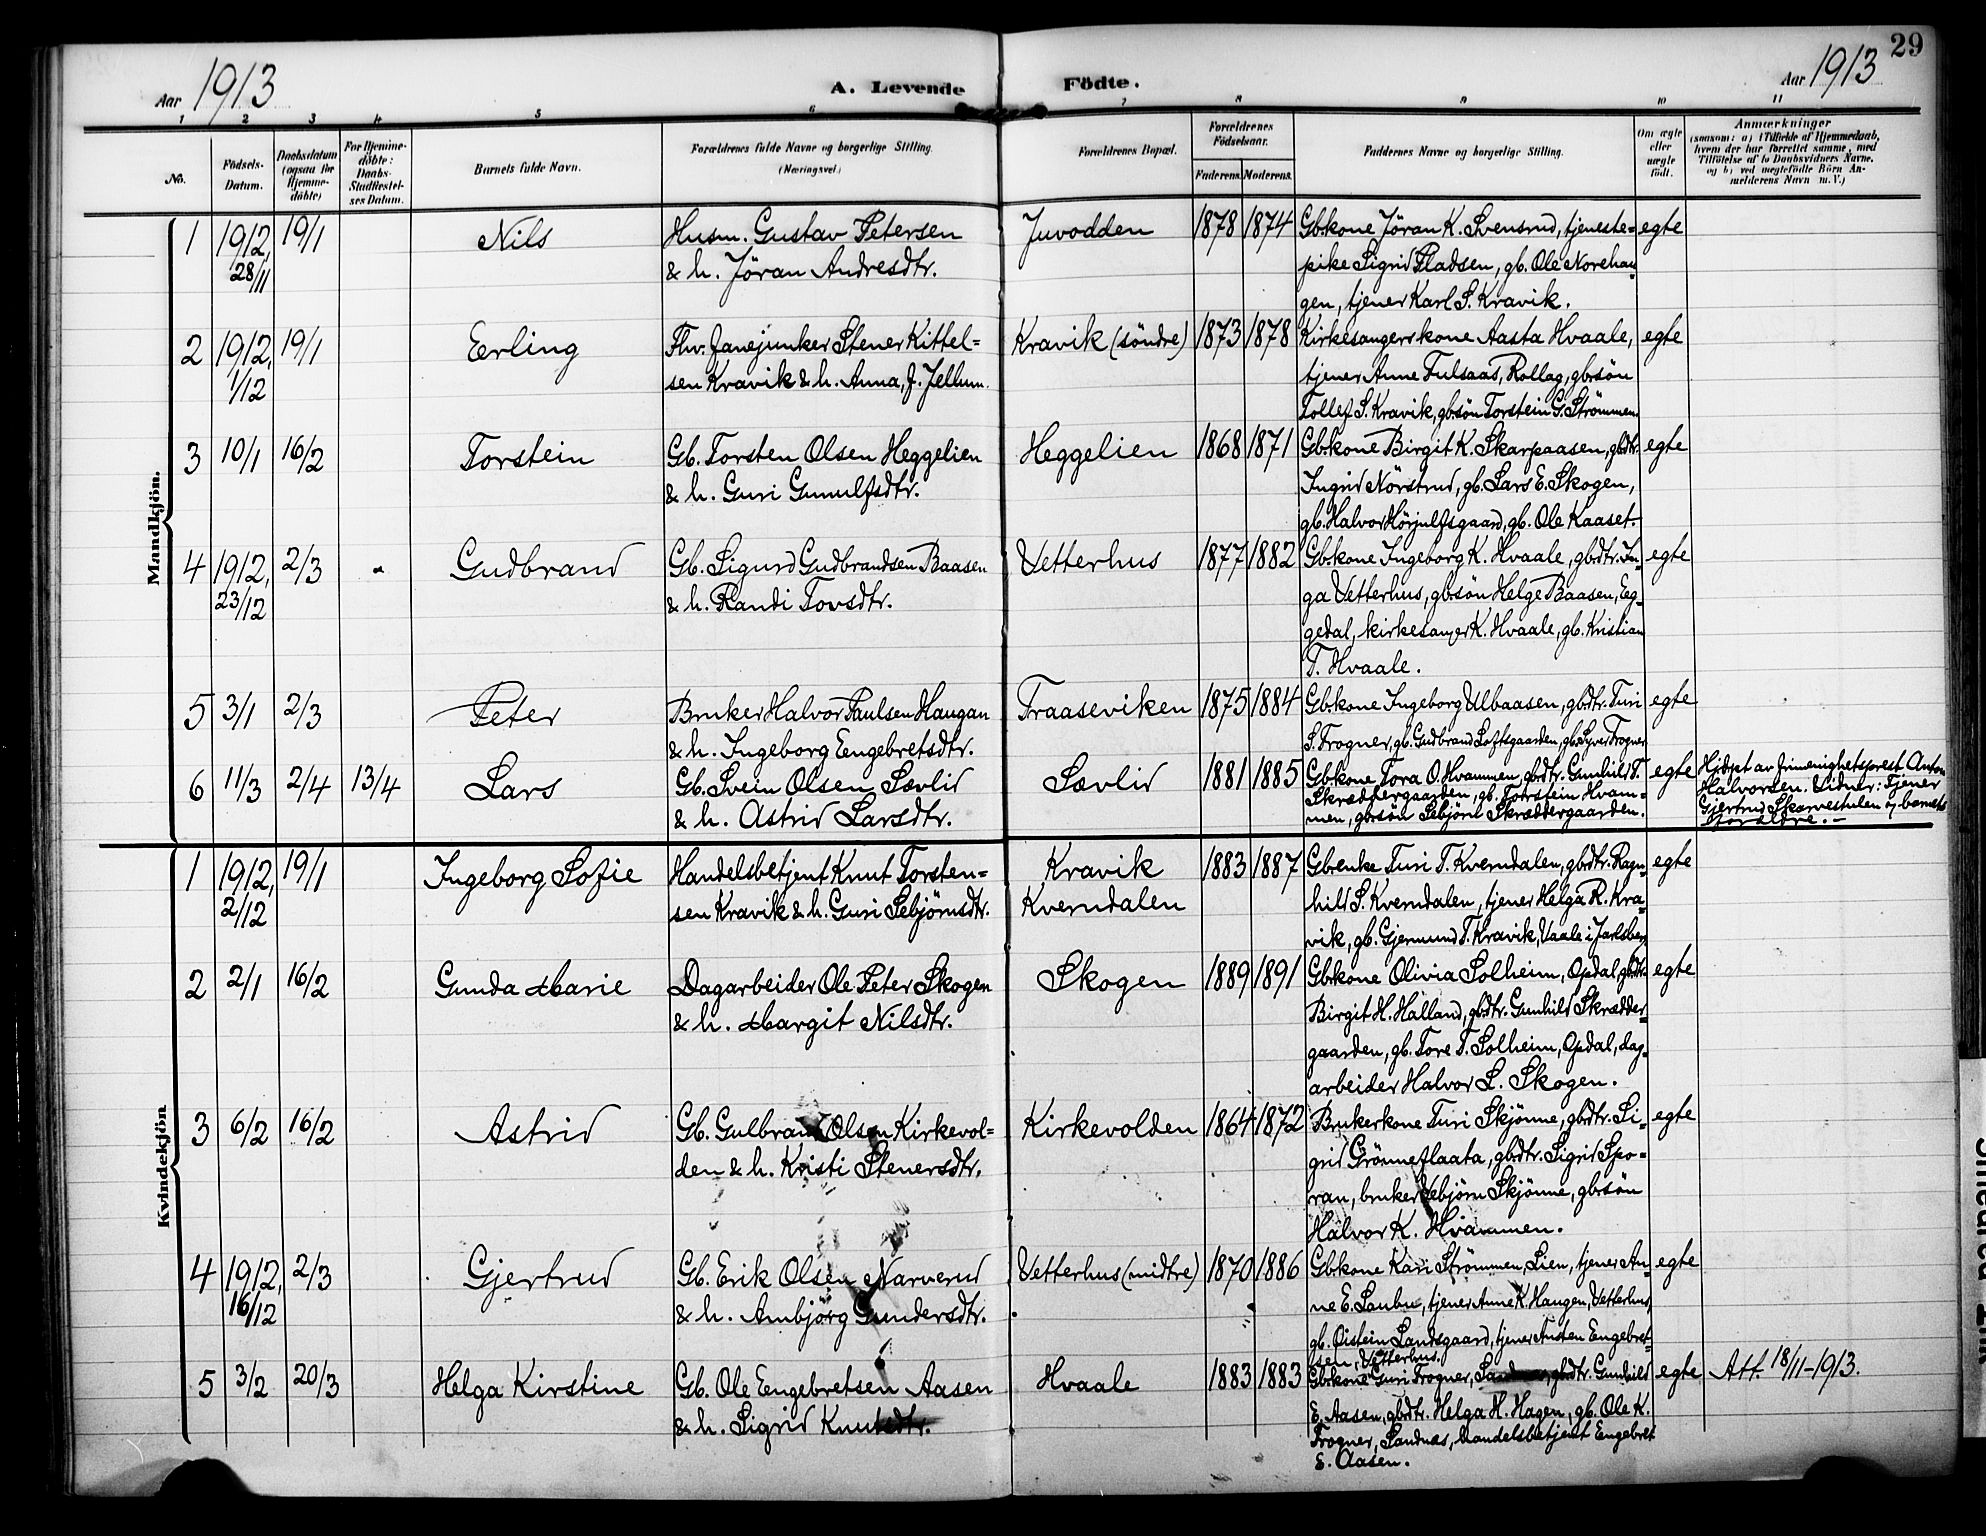 29
Aar 1913
A. Levende Födte.
Aar 1913
1 2 3 4 5 6 7 8 9 10 11
No.
Födsels-Datum.
Daabsdatum (ogsaa for Hjemme-döbte)
For Hjemme-döbte: Daabs-Stadfæstel-ses Datum.
Barnets fulde Navn.
Forældrenes fulde Navne og borgerlige Stilling. (Næringsvei.)
Forældrenes Bopæl.
Forældrenes Födselsaar.
Faderens. Moderens.
Faddernes Navne og borgerlige Stilling.
Om ægte eller uægte födt.
Anmærkninger
(saasom: a) i Tilfælde af Hjemmedaab,
hvem der har forrettet samme, med
Tilföielse af to Daabsvidners Navne,
og b) ved uægtefödte Börn An-
melderens Navn m. V.)
Mandkjön.
1 1912, 28/11 19/1 Nils
Husm. Gustav Petersen
& h. Jöran Andresdtr.
Juvodden 1878 1874
Gb.kone Jöran K. Svensrud, tjeneste=
pike Sigrid Pladsen, gb. Ole Norehau=
gen, tjener Karl S. Kravik.
egte
2 1912, 1/12 19/1 Erling
Fhv. fanejunker Stener Kittel=
sen Kravik & h. Anna, f. Jellum.
Kravik (söndre) 1873 1878
Kirkesangerskone Aasta Hvaale,
tjener Anne Fulsaas, Rollag, gb.sön
Tollef S. Kravik, gb.sön Torstein G. Strömmen.
egte
3 10/1 16/2 Torstein
Gb. Torsten Olsen Heggelien
& h. Guri Gunulfsdtr.
Heggelien 1868 1871
Gb.kone Birgit K. Skarpaasen, gb.dtr.
Ingrid Nörstrud, gb. Lars E. Skogen,
gb. Halvor Hörjulfsgaard, gb. Ole Kaaset.
egte
4 1912, 23/12 2/3 " Gudbrand
Gb. Sigurd Gudbrandsen Baasen
& h. Randi Tovsdtr.
Vetterhus 1877 1882
Gb.kone Ingeborg K. Hvaale, gb.dtr. In=
ga Vetterhus, gb.sön Helge Baasen, Eg=
gedal, kirkesanger K. Hvaale, gb. Kristian
T. Hvaale.
egte
5 3/1 2/3 Peter
Bruker Halvor Paulsen Haugan
& h. Ingeborg Engebretsdtr.
Traaseviken 1875 1884
Gb.kone Ingeborg Ulbaasen, gb.dtr. Turi
S. Frogner, gb. Gudbrand Loftsgaarden, gb. Syver Frogner
egte
6 11/3 2/4 13/4 Lars
Gb. Svein Olsen Sævlid
& h. Astrid Larsdtr.
Sævlid 1881 1885
Gb.kone Tora O. Hvammen, gb.dtr. Gunhild T.
Skræddergaarden, gb. Torstein Hvam=
men, gb.sön Sebjörn Skræddergaarden.
egte
Hj.döpt av frimenighetsprest Anton
Halvorsen. Vidner: Tjener
Gjertrud Skarvestulen og barnets
foræeldre. –
Kvindekjön.
1 1912, 2/12 19/1 Ingeborg Sofie
Handelsbetjent Knut Torsten=
sen Kravik & h. Guri Sebjörnsdtr.
Kravik
Kverndalen 1883 1887
Gb.enke Turi T. Kverndalen, gb.dtr. Ragn=
hild S. Kverndalen, tjener Helga R. Kra=
vik, gb. Gjermund T. Kravik, Vaale i Jarlsberg
egte
2 2/1 16/2 Gunda Marie
Dagarbeider Ole Peter Skogen
& h. Margit Nilsdtr.
Skogen 1889 1891
Gb.kone Olivia Solheim, Opdal, gb.dtr.
Birgit H. Halland, gb.dtr. Gunhild Skrædder=
gaarden, gb. Tore T. Solheim, Opdal, dag=
arbeider Halvor L. Skogen.
egte
3 6/2 16/2 Astrid
Gb. Gulbrand Olsen Kirkevol=
den & h. Kristi Stenersdtr.
Kirkevolden 1864 1872
Brukerkone Turi Skjönne, gb.dtr. Si=
grid Grönneflaata, gb.dtr. Sigrid Spo=
ran, bruker Sebjörn Skjönne, gb.sön
Halvor K. Hvammen.
egte
4 1912, 16/12 2/3 Gjertrud
Gb. Erik Olsen Narverud
& h. Ambjörg Gundersdtr.
Vetterhus (midtre) 1870 1886
Gb.kone Kari Strömmen, Lien, tjener An=
ne E. Laubu, tjener Anne K. Haugen, Vetterhus,
gb. Öistein Landsgaard, tjener Austen Engebret=
sen, Vetterhus.
egte
5 3/2 20/3 Helga Kirstine
Gb. Ole Engebretsen Aasen
& h. Sigrid Knutsdtr.
Hvaale 1883 1883
Gb.kone Guri Frogner, gb.dtr. Gunhild
E. Aasen, gb.dtr. Helga H. Hagen, gb. Ole K.
Frogner, Sandnæs, handelsbetjent Engebret
E. Aasen.
egte
Att. 18/11-1913.